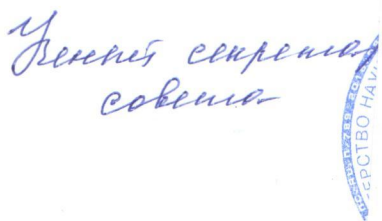 Ученый секретарь
совета
ЕРСТВО НАУК